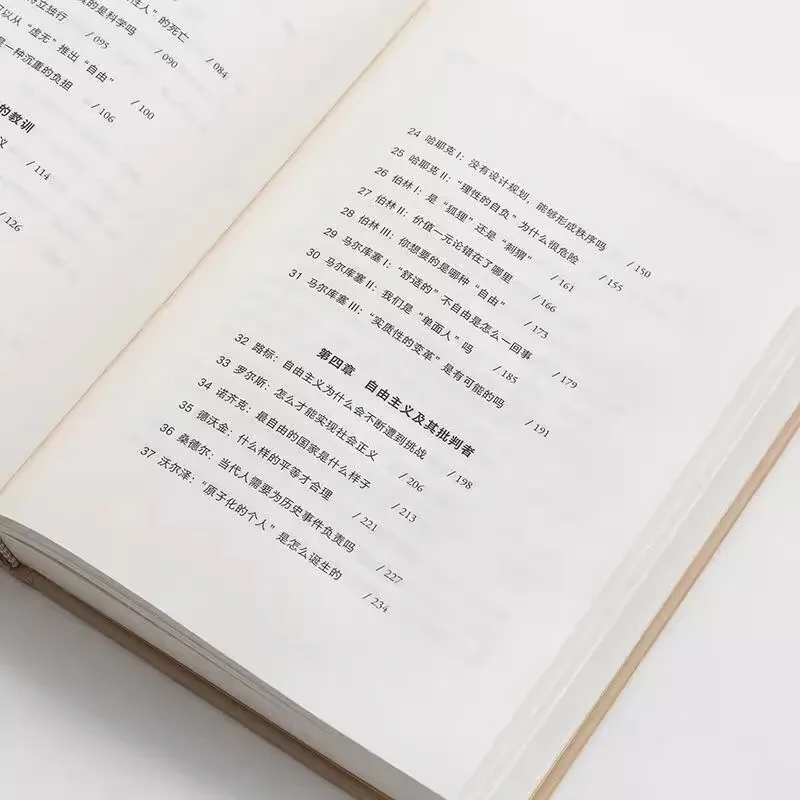 性人”的死亡 / 084
的是科学吗 / 090
立独行 / 095
可以从“虚无”推出“自由” / 100
是一种沉重的负担 / 106
的教训
义 / 114
/ 126
24 哈耶克 I：没有设计规划，能够形成秩序吗 / 150
25 哈耶克 II：“理性的自负”为什么很危险 / 155
26 伯林 I：是“狐狸”还是“刺猬” / 161
27 伯林 II：价值一元论错在了哪里 / 166
28 伯林 III：你想要的是哪种“自由” / 173
29 马尔库塞 I：“舒适的”不自由是怎么一回事 / 179
30 马尔库塞 II：我们是“单面人”吗 / 185
31 马尔库塞 III：“实质性的变革”是有可能的吗 / 191
第四章 自由主义及其批判者
32 路标：自由主义为什么会不断遭到挑战 / 198
33 罗尔斯：怎么才能实现社会正义 / 206
34 诺齐克：最自由的国家是什么样子 / 213
35 德沃金：什么样的平等才合理 / 221
36 桑德尔：当代人需要为历史事件负责吗 / 227
37 沃尔泽：“原子化的个人”是怎么诞生的 / 234